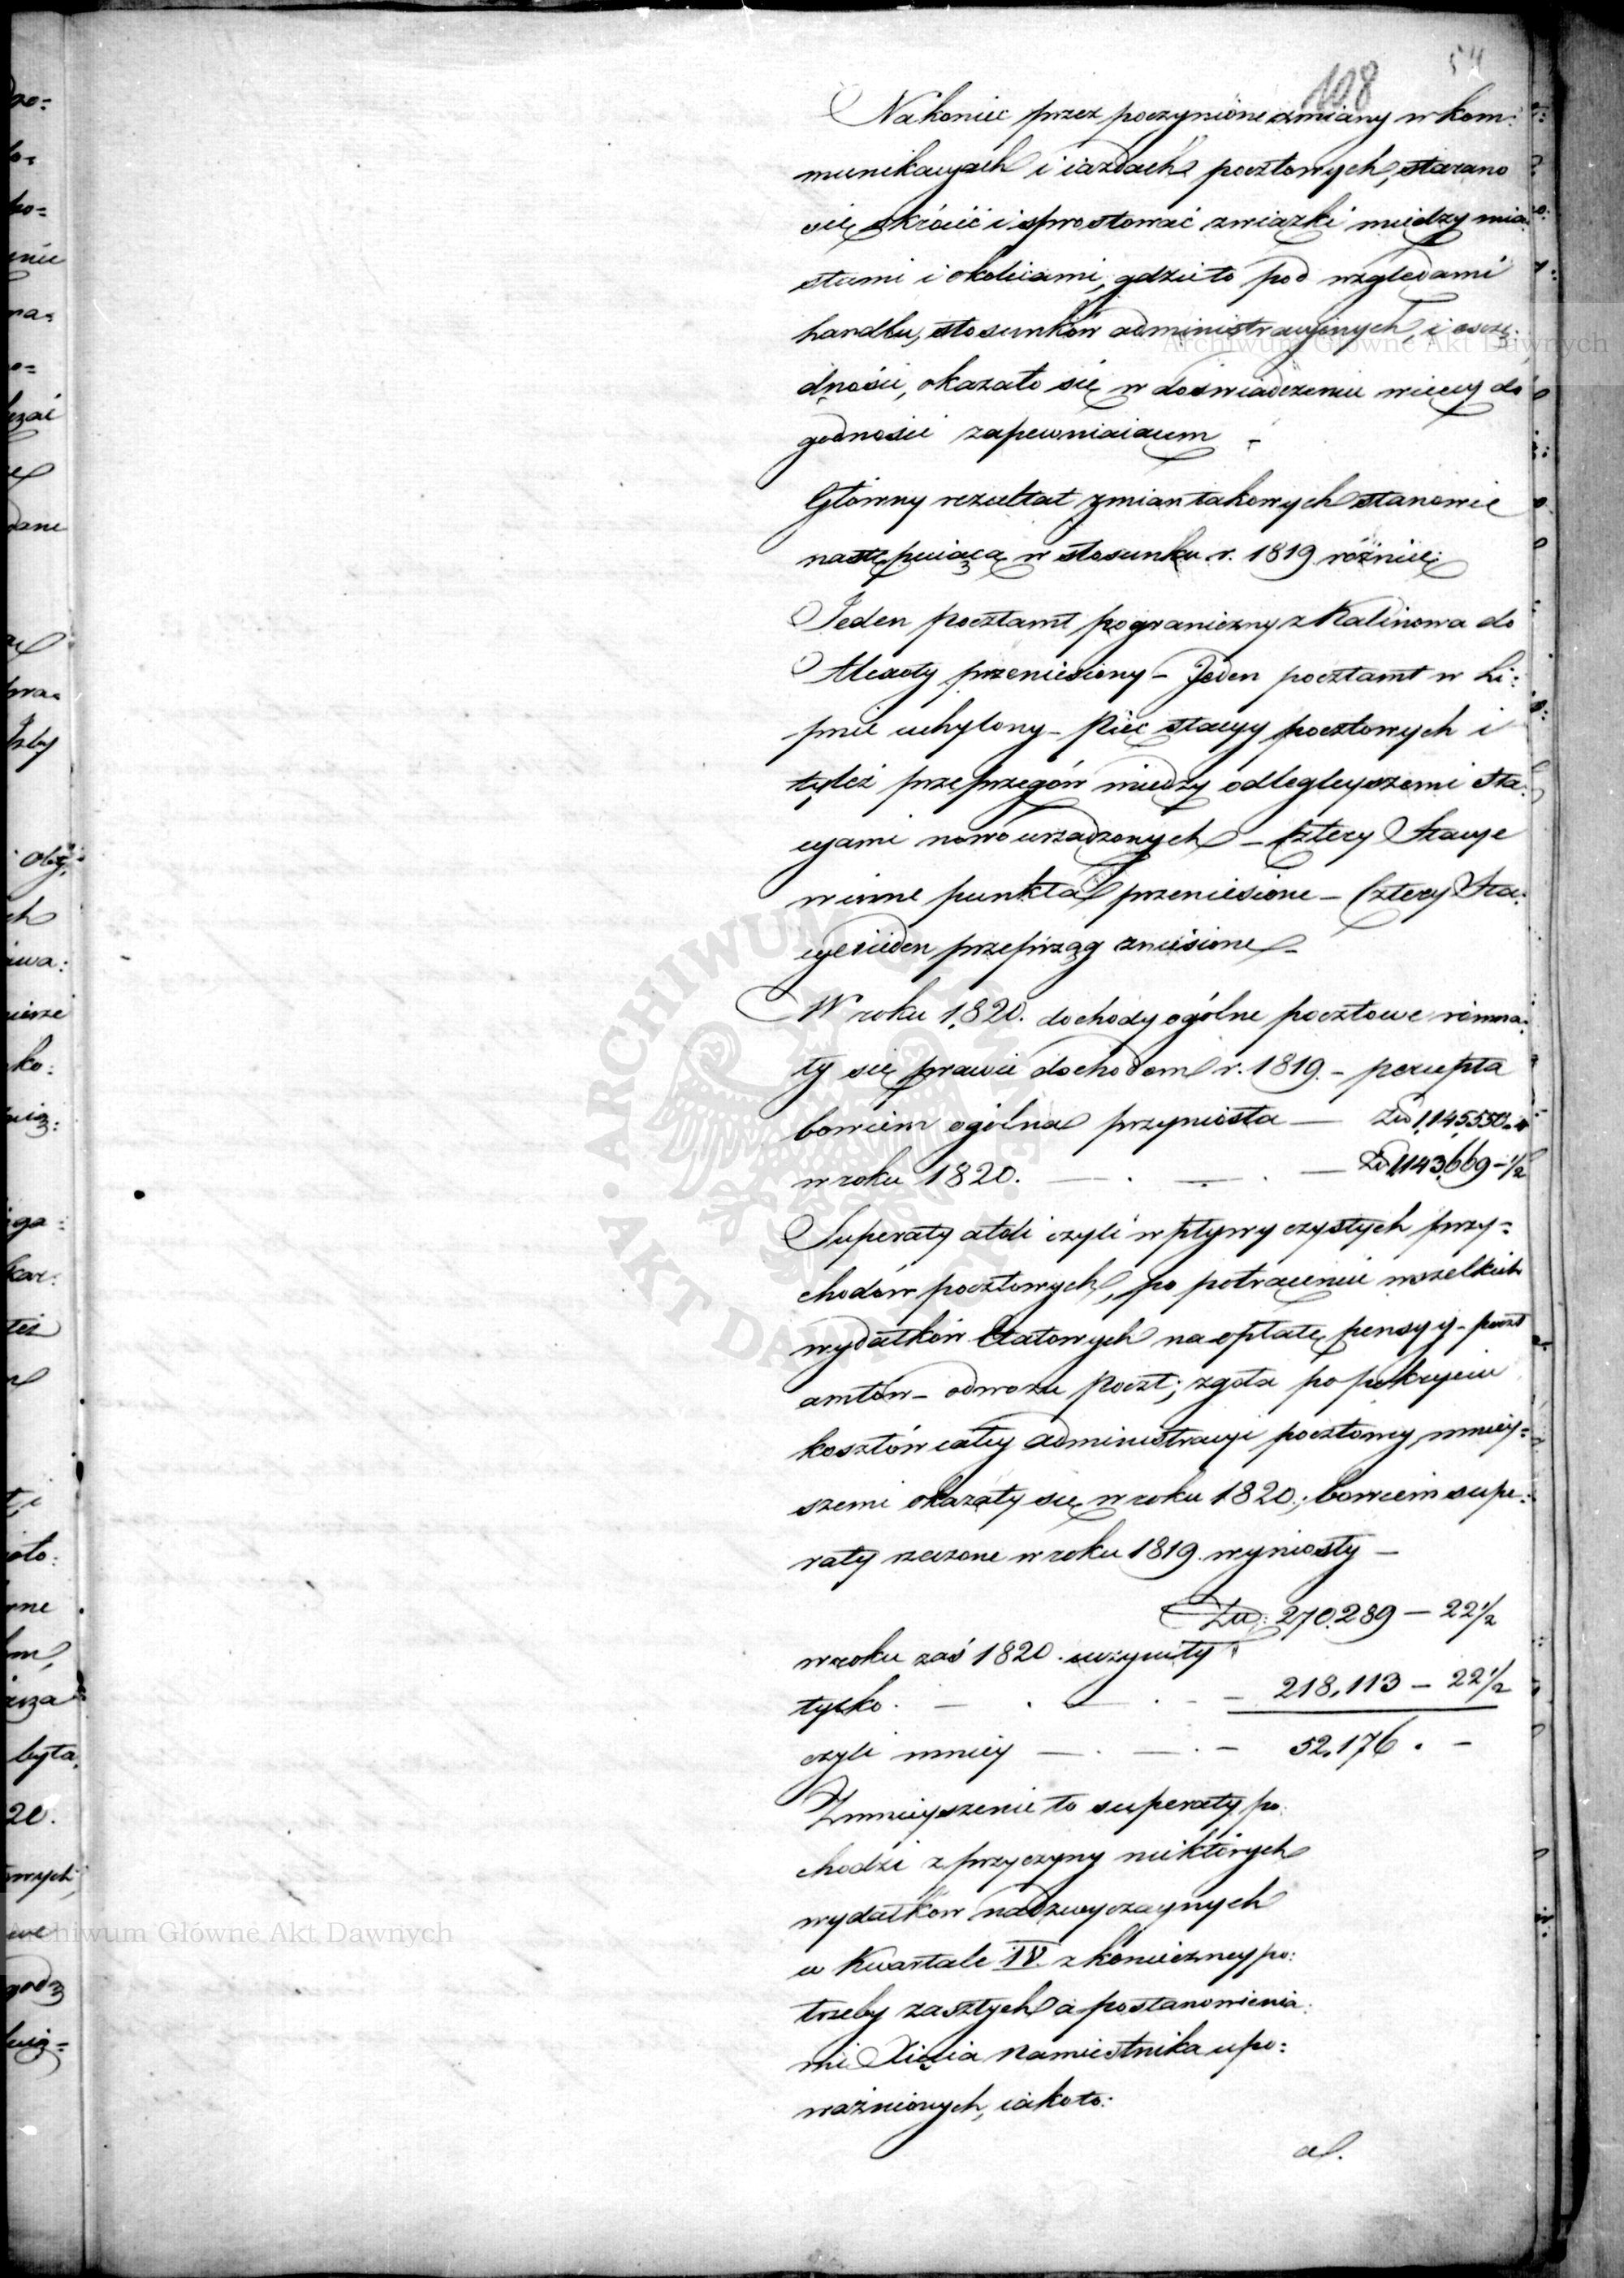 108
54
Nakoniec przez poczynione zmiany w kom:
munikacyach i iazdach pocztowych, starano
się skrócić i sprostować związki między mia:
stami i okolicami, gdzie to pod względami
handlu, stosunków administracyinych, i oszczę:
dności, okazało się w doświadczeniu więcey do
godności zapewniaiącem –
Główny rezultat zmian takowych stanowie
następuiącą w stosunku r. 1819 różnicę:
Jeden pocztamt pograniczny z Kalinowa do
Alexoty przeniesiony – Jeden pocztamt w Li:
pnie uchylony – Pięć stacyy pocztowych i
tyleż przeprzęgów między odległeyszemi sta:
cyami nowo urządzonych – Cztery Stacye
w inne punkta przeniesione – Cztery Sta:
cye i ieden przeprząg zniesione –
W roku 1820. dochody ogólne pocztowe równa:
ły się prawie dochodom r. 1819. – percepta
bowiem ogólna przyniosła — Zł 1,145,550.
w roku 1820. — . — . — Zł 1,143,669 – ½
Superaty atoli czyli wpływy czystych przy=
chodów pocztowych, po potrąceniu wszelkich
wydatków Etatowych na opłatę pensyy – poczt
amtów – odwozu Poczt; zgoła po pokryciu
kosztów całey administracyi pocztowey, mniey=
szemi okazały się w roku 1820; bowiem supe:
raty rzeczone w roku 1819. wyniosły –
Zł: 270.289 – 22½
w roku zaś 1820. uczyniły
tylko. — . — . – – 218,113 – 22½
czyli mniey — . — . – 52,176 . –
Zmnieyszenie to superaty po:
chodzi z przyczyny niektórych
wydatków nadzwyczaynych
w Kwartale IV. z konieczney po:
trzeby zaszłych a postanowienia:
mi Xięcia Namiestnika upo:
ważnionych, iako to:
a/.
Archiwum Główne Akt Dawnych
Archiwum Główne Akt Dawnych
ARCHIWUM GŁÓWNE AKT DAWNYCH